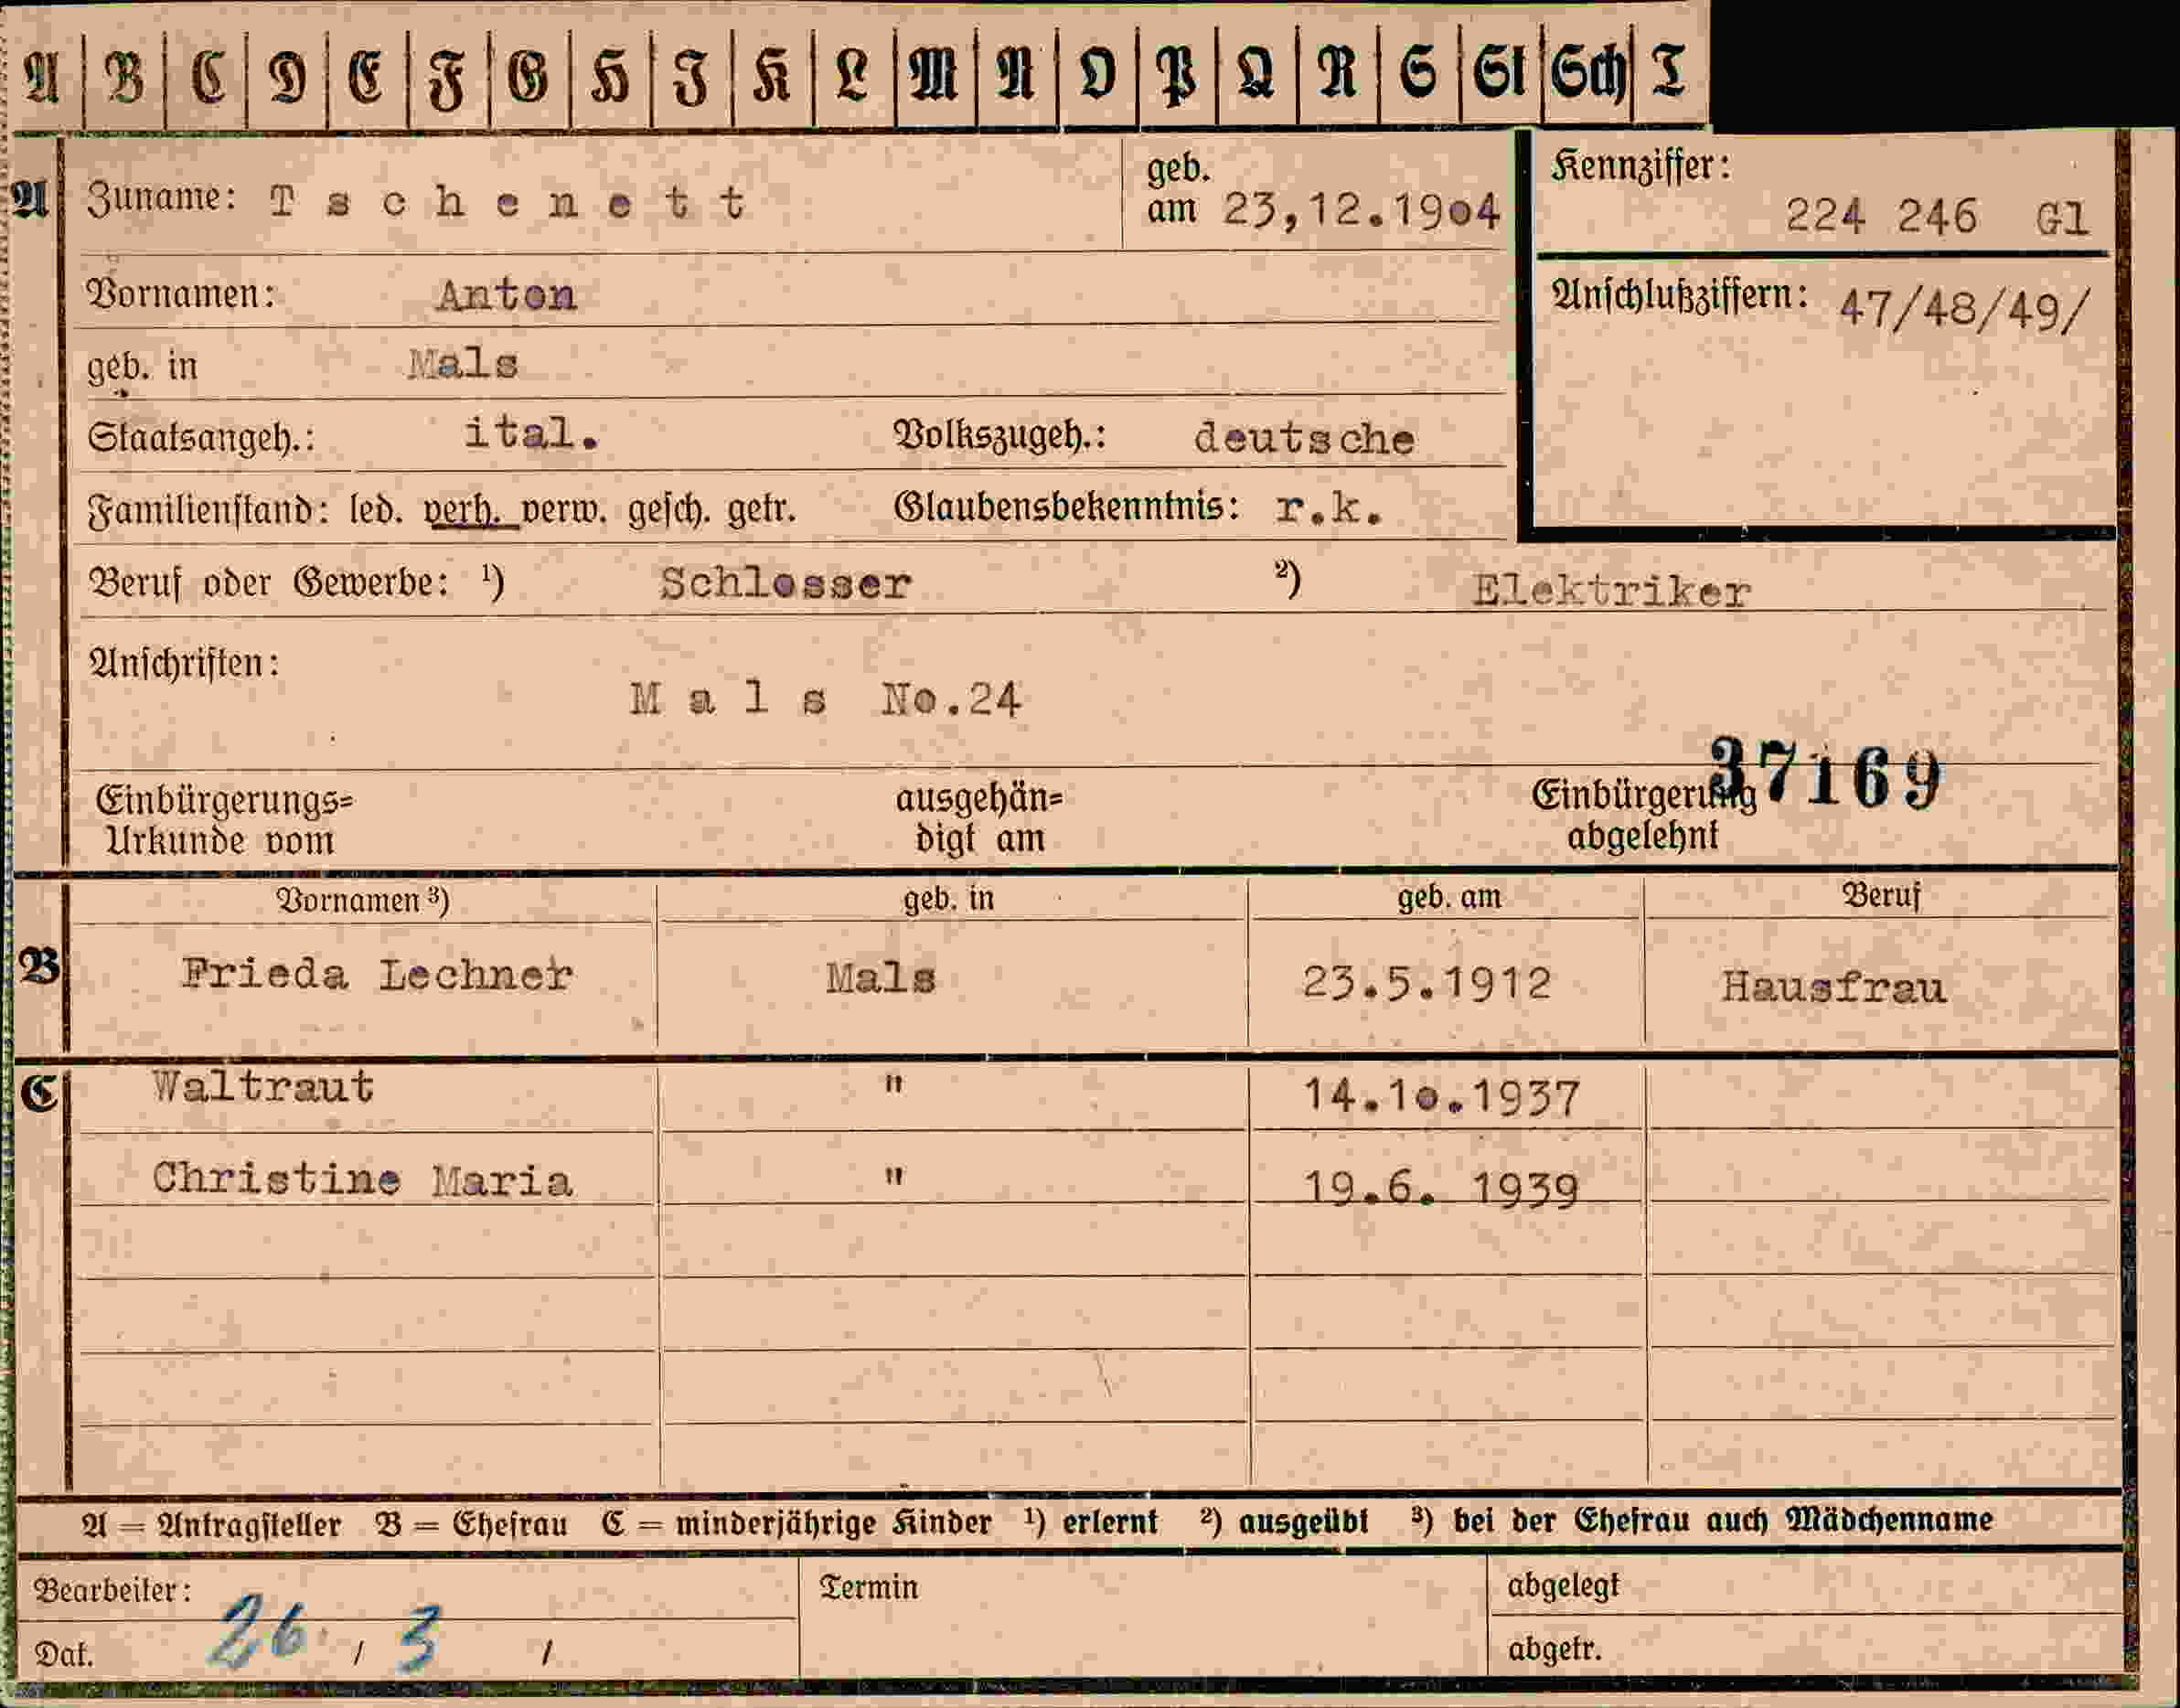 A B C D E F G H J K L M N O P Q R S St Sch T
A Zuname: Tschenett geb. am 23,12.19o4 Kennziffer: 224 246 Gl
Vornamen: Anton Anschlußziffern: 47/48/49/
geb. in Mals
Staatsangeh.: ital. Volkszugeh.: deutsche
Familienstand: led. verh. verw. gesch. getr. Glaubensbekenntnis: r.k.
Beruf oder Gewerbe: ¹) Schlosser ²) Elektriker
Anschriften:
Mals No.24
37169
Einbürgerungs= ausgehän= Einbürgerung
Urkunde vom digt am abgelehnt
Vornamen ³) geb. in geb. am Beruf
B Frieda Lechner Mals 23.5.1912 Hausfrau
C Waltraut " 14.1o.1937
Christine Maria " 19.6. 1939
A = Antragsteller B = Ehefrau C = minderjährige Kinder ¹) erlernt ²) ausgeübt ³) bei der Ehefrau auch Mädchenname
Bearbeiter: Termin abgelegt
Dat. 26 / 3 / abgetr.